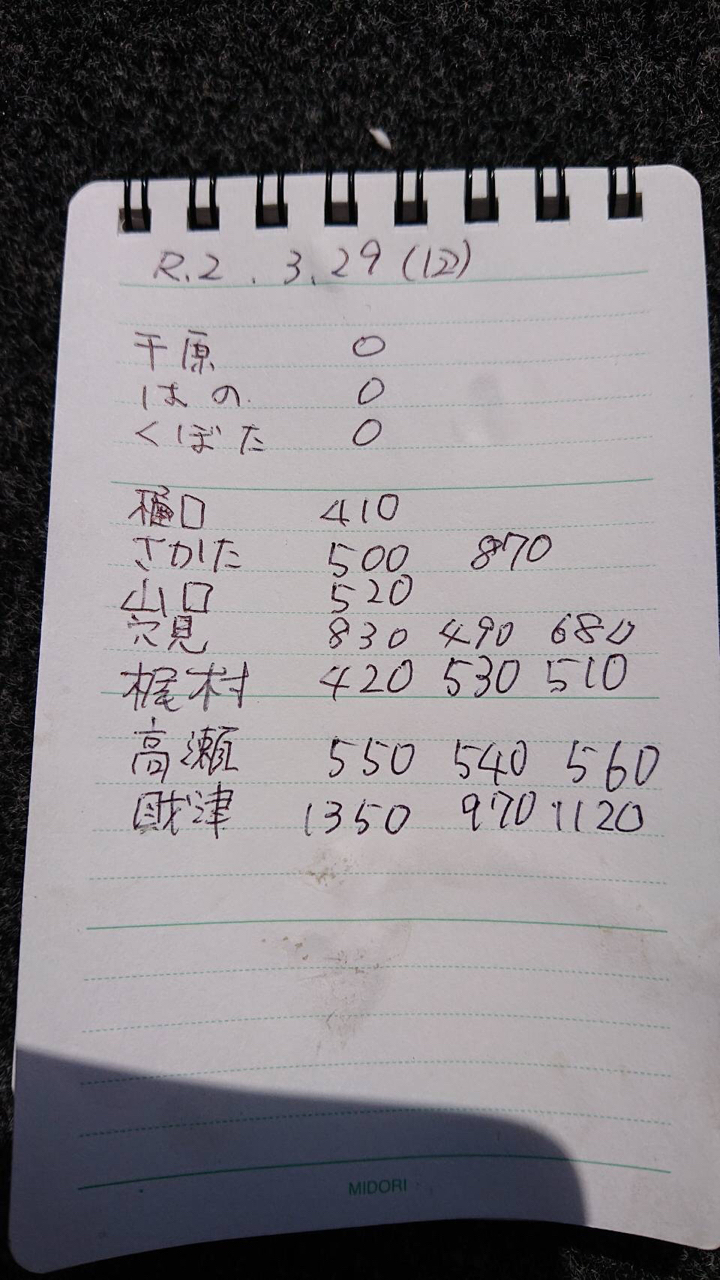 R.2.3.29(12)
平原 0
はの 0
くぼた 0
樋口 410
さかた 500 870
山口 520
穴見 830 490 680
梶村 420 530 510
高瀬 550 540 560
財津 1350 970 1120
MIDORI